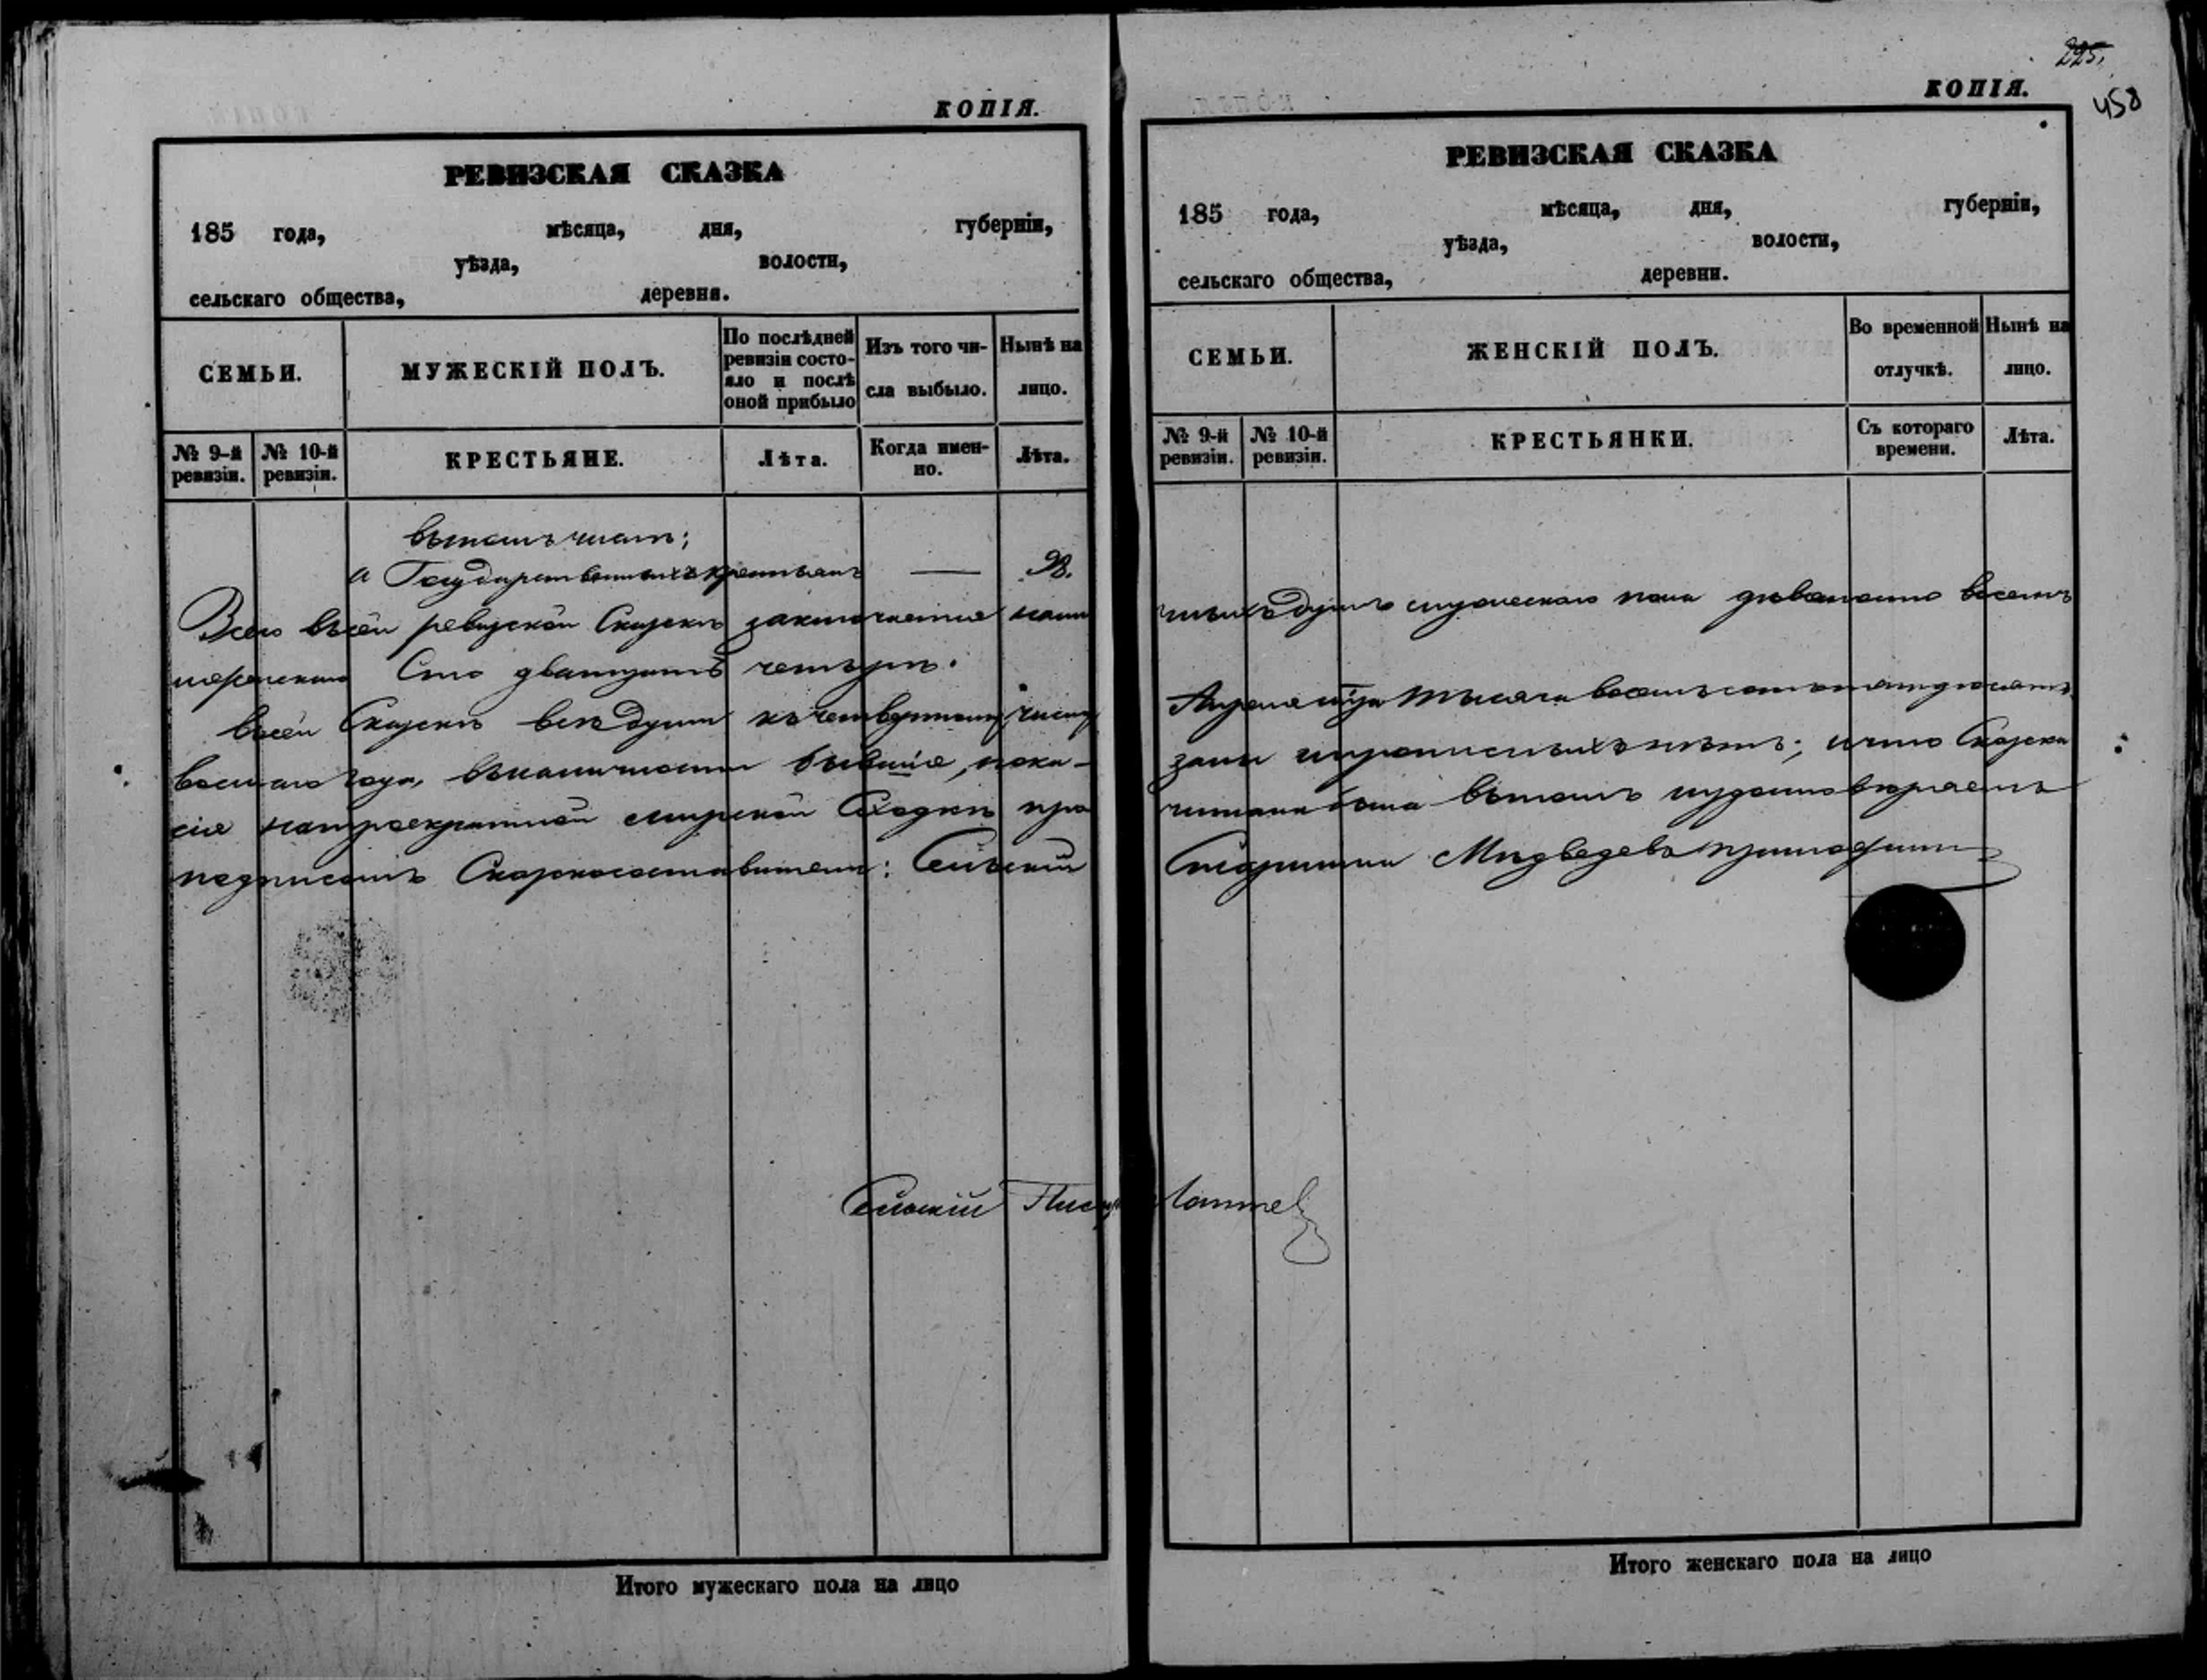 КОПІЯ.
РЕВИЗСКАЯ СКАЗКА
185 года, мѣсяца, дня, губерніи,
уѣзда, волости,
сельскаго общества, деревни.
СЕМЬИ.
МУЖЕСКІЙ ПОЛЪ.
По послѣдней
ревизіи состо-
яло и послѣ
оной прибыло
Изъ того чи-
сла выбыло.
Нынѣ на
лицо.
№ 9-й
ревизіи.
№ 10-й
ревизіи.
КРЕСТЬЯНЕ.
Лѣта.
Когда имен-
но.
Лѣта.
въ томъ числѣ;
а Государственныхъ крестьянъ — 98.
Всего въ сей ревизской Сказкѣ заключается нали
женскаго Сто двадцать четыре.
Въ сей Сказкѣ всѣ души къ четвертому числу
восьмаго года, въ наличности бывшіе, пока-
сія на троекратной мирской Сходкѣ про
подписомъ Сказкосоставители: Сельскій
Сельскій Писарь
Итого мужескаго пола на лицо
225.
458
КОПІЯ.
РЕВИЗСКАЯ СКАЗКА
185 года, мѣсяца, дня, губерніи,
уѣзда, волости,
сельскаго общества, деревни.
СЕМЬИ.
ЖЕНСКІЙ ПОЛЪ.
Во временной
отлучкѣ.
Нынѣ на
лицо.
№ 9-й
ревизіи.
№ 10-й
ревизіи.
КРЕСТЬЯНКИ.
Съ котораго
времени.
Лѣта.
чныхъ душъ мужескаго пола девяносто восемь
Апреля тысяча восемьсотъ пятьдесятъ
заны и прописныхъ нѣтъ; и что Сказка
читана была въ томъ и удостовѣряемъ
Старшина Медведевъ приложилъ
Итого женскаго пола на лицо